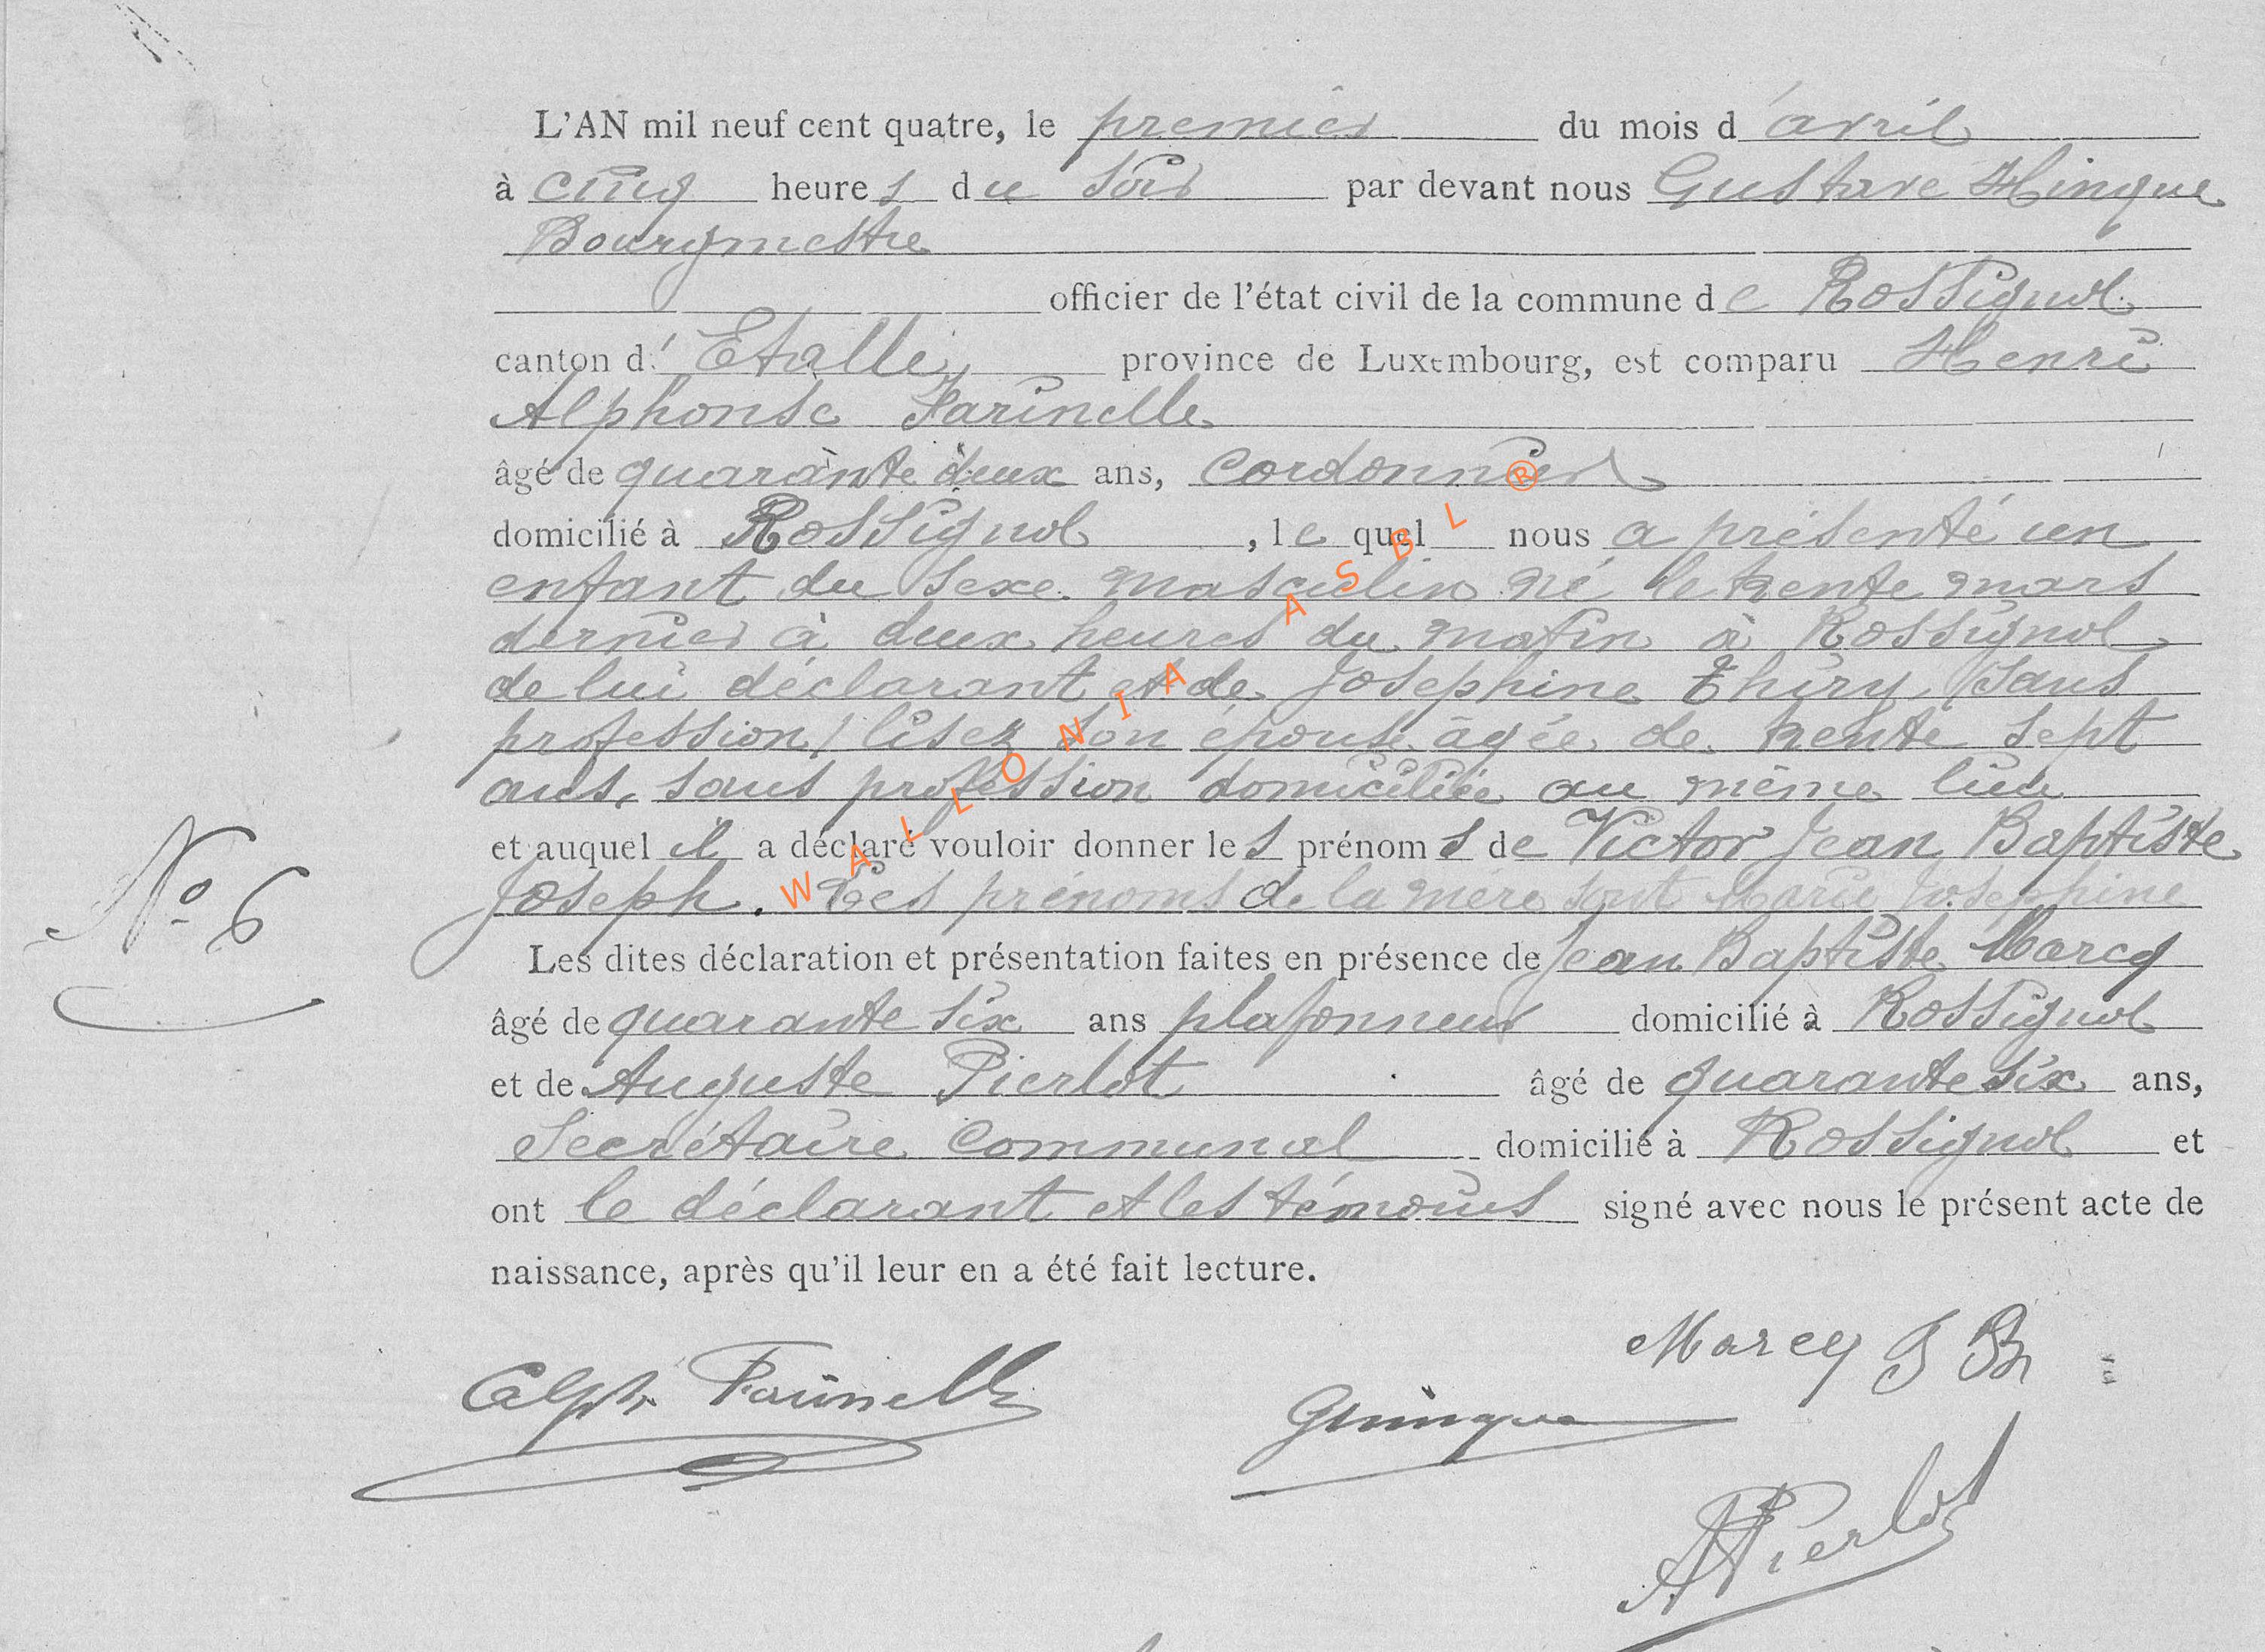 L'AN mil neuf cent quatre, le premier du mois d'avril
à cinq heures du soir par devant nous Gustave Hinque
Bourgmestre
officier de l'état civil de la commune de Rossignol
canton d'Etalle, province de Luxembourg, est comparu Henri
Alphonse Farinelle
âgé de quarante deux ans, cordonnier
domicilié à Rossignol, lequel nous a présenté un
enfant du sexe masculin né le trente mars
dernier à deux heures du matin à Rossignol
de lui déclarant et de Joséphine Thiry, (sans
profession) lisez son épouse âgée de trente sept
ans, sans profession domiciliée au même lieu
et auquel il a déclaré vouloir donner les prénoms de Victor Jean Baptiste
Joseph. Les prénoms de la mère sont Marie Joséphine
N° 6
Les dites déclaration et présentation faites en présence de Jean Baptiste Marcq
âgé de quarante six ans plafonneur domicilié à Rossignol
et de Auguste Pierlot âgé de quarante six ans,
Secrétaire communal domicilié à Rossignol et
ont le déclarant et les témoins signé avec nous le présent acte de
naissance, après qu'il leur en a été fait lecture.
Marcq J Bte
Alph. Farinelle
GHinque
APierlot
WALLONIA ASBL ®